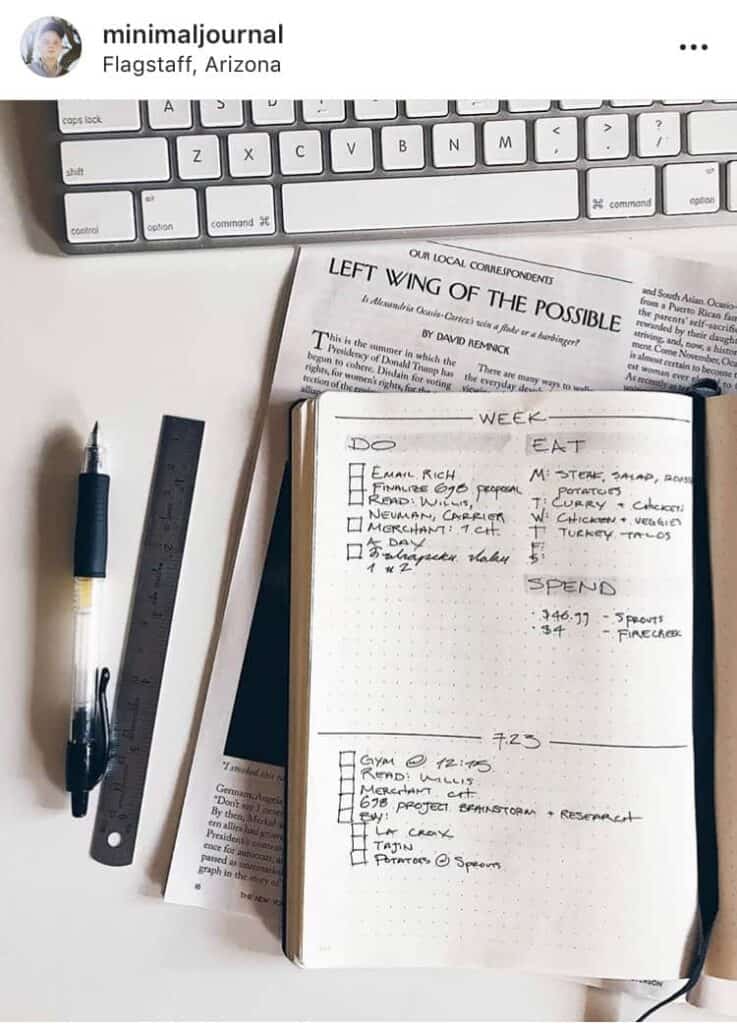 minimaljournal
Flagstaff, Arizona
caps lock
A S D
shift
Z X C V B N M < , > . ? /
control
alt option
command ⌘
⌘ command
option
OUR LOCAL CORRESPONDENTS
LEFT WING OF THE POSSIBLE
Is Alexandria Ocasio-Cortez's win a fluke or a harbinger?
BY DAVID REMNICK
This is the summer in which the
Presidency of Donald Trump has
begun to cohere. Disdain for voting
rights, for women's rights, for the
There are many ways to
the everyday
and South Asian. Ocasio-
from a Puerto Rican fam
the parents' self-sacrific
rewarded by their daught
striving, and, now, a histor
ment. Come November, Ocas
is almost certain to become t
est woman ever
As recently as
WEEK
DO
EMAIL RICH
FINALIZE 698 PROPOSAL
READ: WILLIS,
NEUMAN, CARRIER
MERCHANT: 1 CH.
A DAY
1 + 2
EAT
M: STEAK, SALAD, ROAST
POTATOES
T: CURRY + CHICKEN
W: CHICKEN + VEGGIES
T: TURKEY TACOS
F:
S:
SPEND
· $46.99 - SPROUTS
· $4 - FIRECREEK
7.23
GYM @ 12:15
READ: WILLIS
MERCHANT CH.
698 PROJECT BRAINSTORM + RESEARCH
BUY:
LA CROIX
TAJIN
POTATOES @ SPROUTS
"I smoked this
German, Angela
"Don't say I never
By then, Merkel
ern allies had
President's
ence for autocrats,
passed as
graph in the story of
THE NEW YO